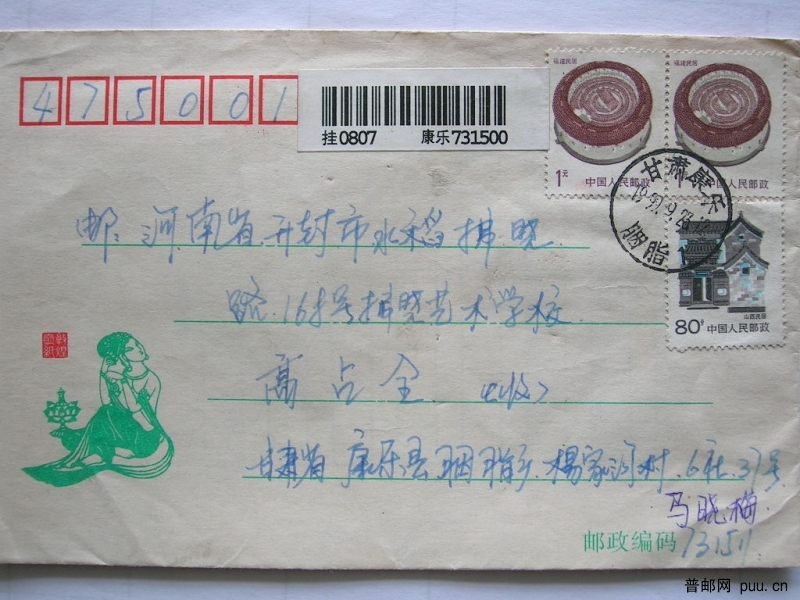 475001
挂0807 康乐731500
福建民居
1元 中国人民邮政
福建民居
1 中国人民邮政
甘肃康乐
1997.9.23.
胭脂
山西民居
80分 中国人民邮政
邮:河南省开封市水稻拂晓
路16号拂晓艺术学校
高占全 (收)
甘肃省康乐县胭脂乡杨家河村6社37号
马晓梅
邮政编码 731511
普邮网 puu.cn